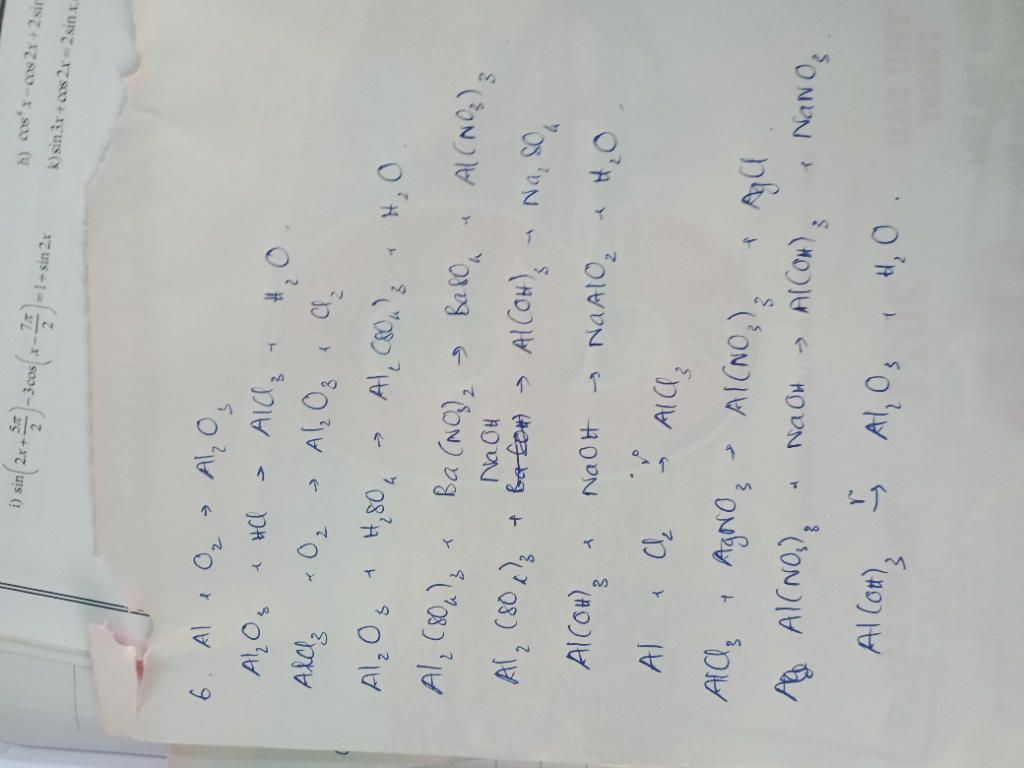 i) sin(2x + 5π/2) − 3cos(x − 7π/2) = 1 + sin2x
h) cos⁴x − cos2x + 2sin
k) sin3x + cos2x = 2sinx.
6. Al + O₂ → Al₂O₃
Al₂O₃ + HCl → AlCl₃ + H₂O.
AlCl₃ + O₂ → Al₂O₃ + Cl₂
Al₂O₃ + H₂SO₄ → Al₂(SO₄)₃ + H₂O.
Al₂(SO₄)₃ + Ba(NO₃)₂ → BaSO₄ + Al(NO₃)₃
Al₂(SO₄)₃ + NaOH → Al(OH)₃ + Na₂SO₄
Al(OH)₃ + NaOH → NaAlO₂ + H₂O.
Al + Cl₂ → AlCl₃
AlCl₃ + AgNO₃ → Al(NO₃)₃ + AgCl
Al(NO₃)₃ + NaOH → Al(OH)₃ + NaNO₃.
Al(OH)₃ → Al₂O₃ + H₂O.